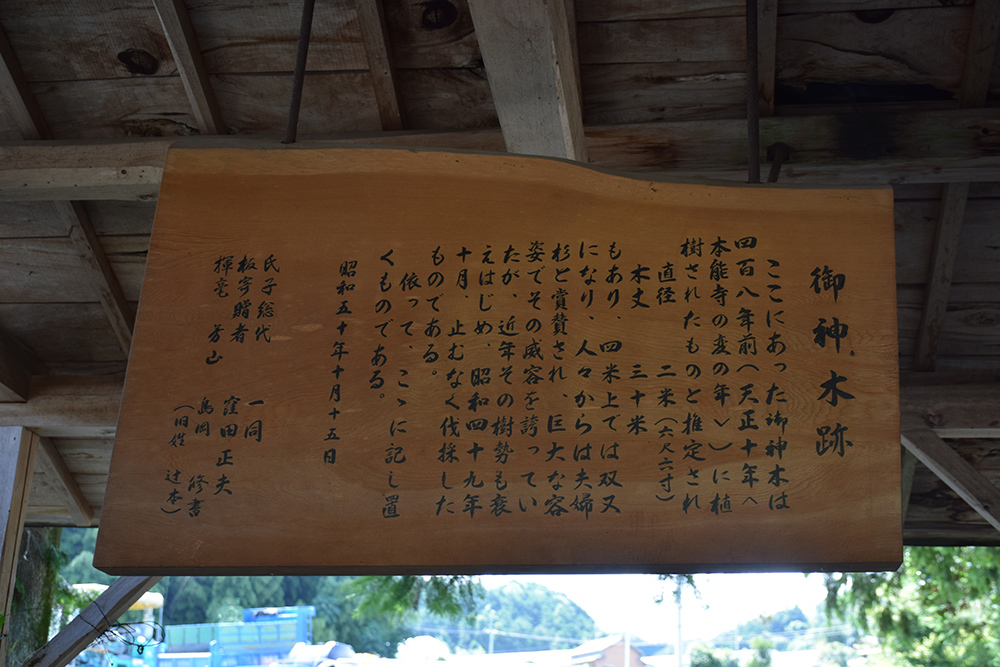 御神木跡
ここにあった御神木は
四百八年前(天正十年へ
本能寺の変の年〉)に植
樹されたものと推定され
直径 二米(六尺六寸)
木丈 三十米
もあり、四米上では双又
になり、人々からは夫婦
杉と賞賛され、巨大な容
姿でその威容を誇ってい
たが、近年その樹勢も衰
えはじめ、昭和四十九年
十月、止むなく伐採した
ものである。
依って、こゝに記し置
くものである。
昭和五十年十月十五日
氏子総代 一同
板寄贈者 窪田正夫
揮毫 芳山 嶋岡 修書
(旧姓 辻本)